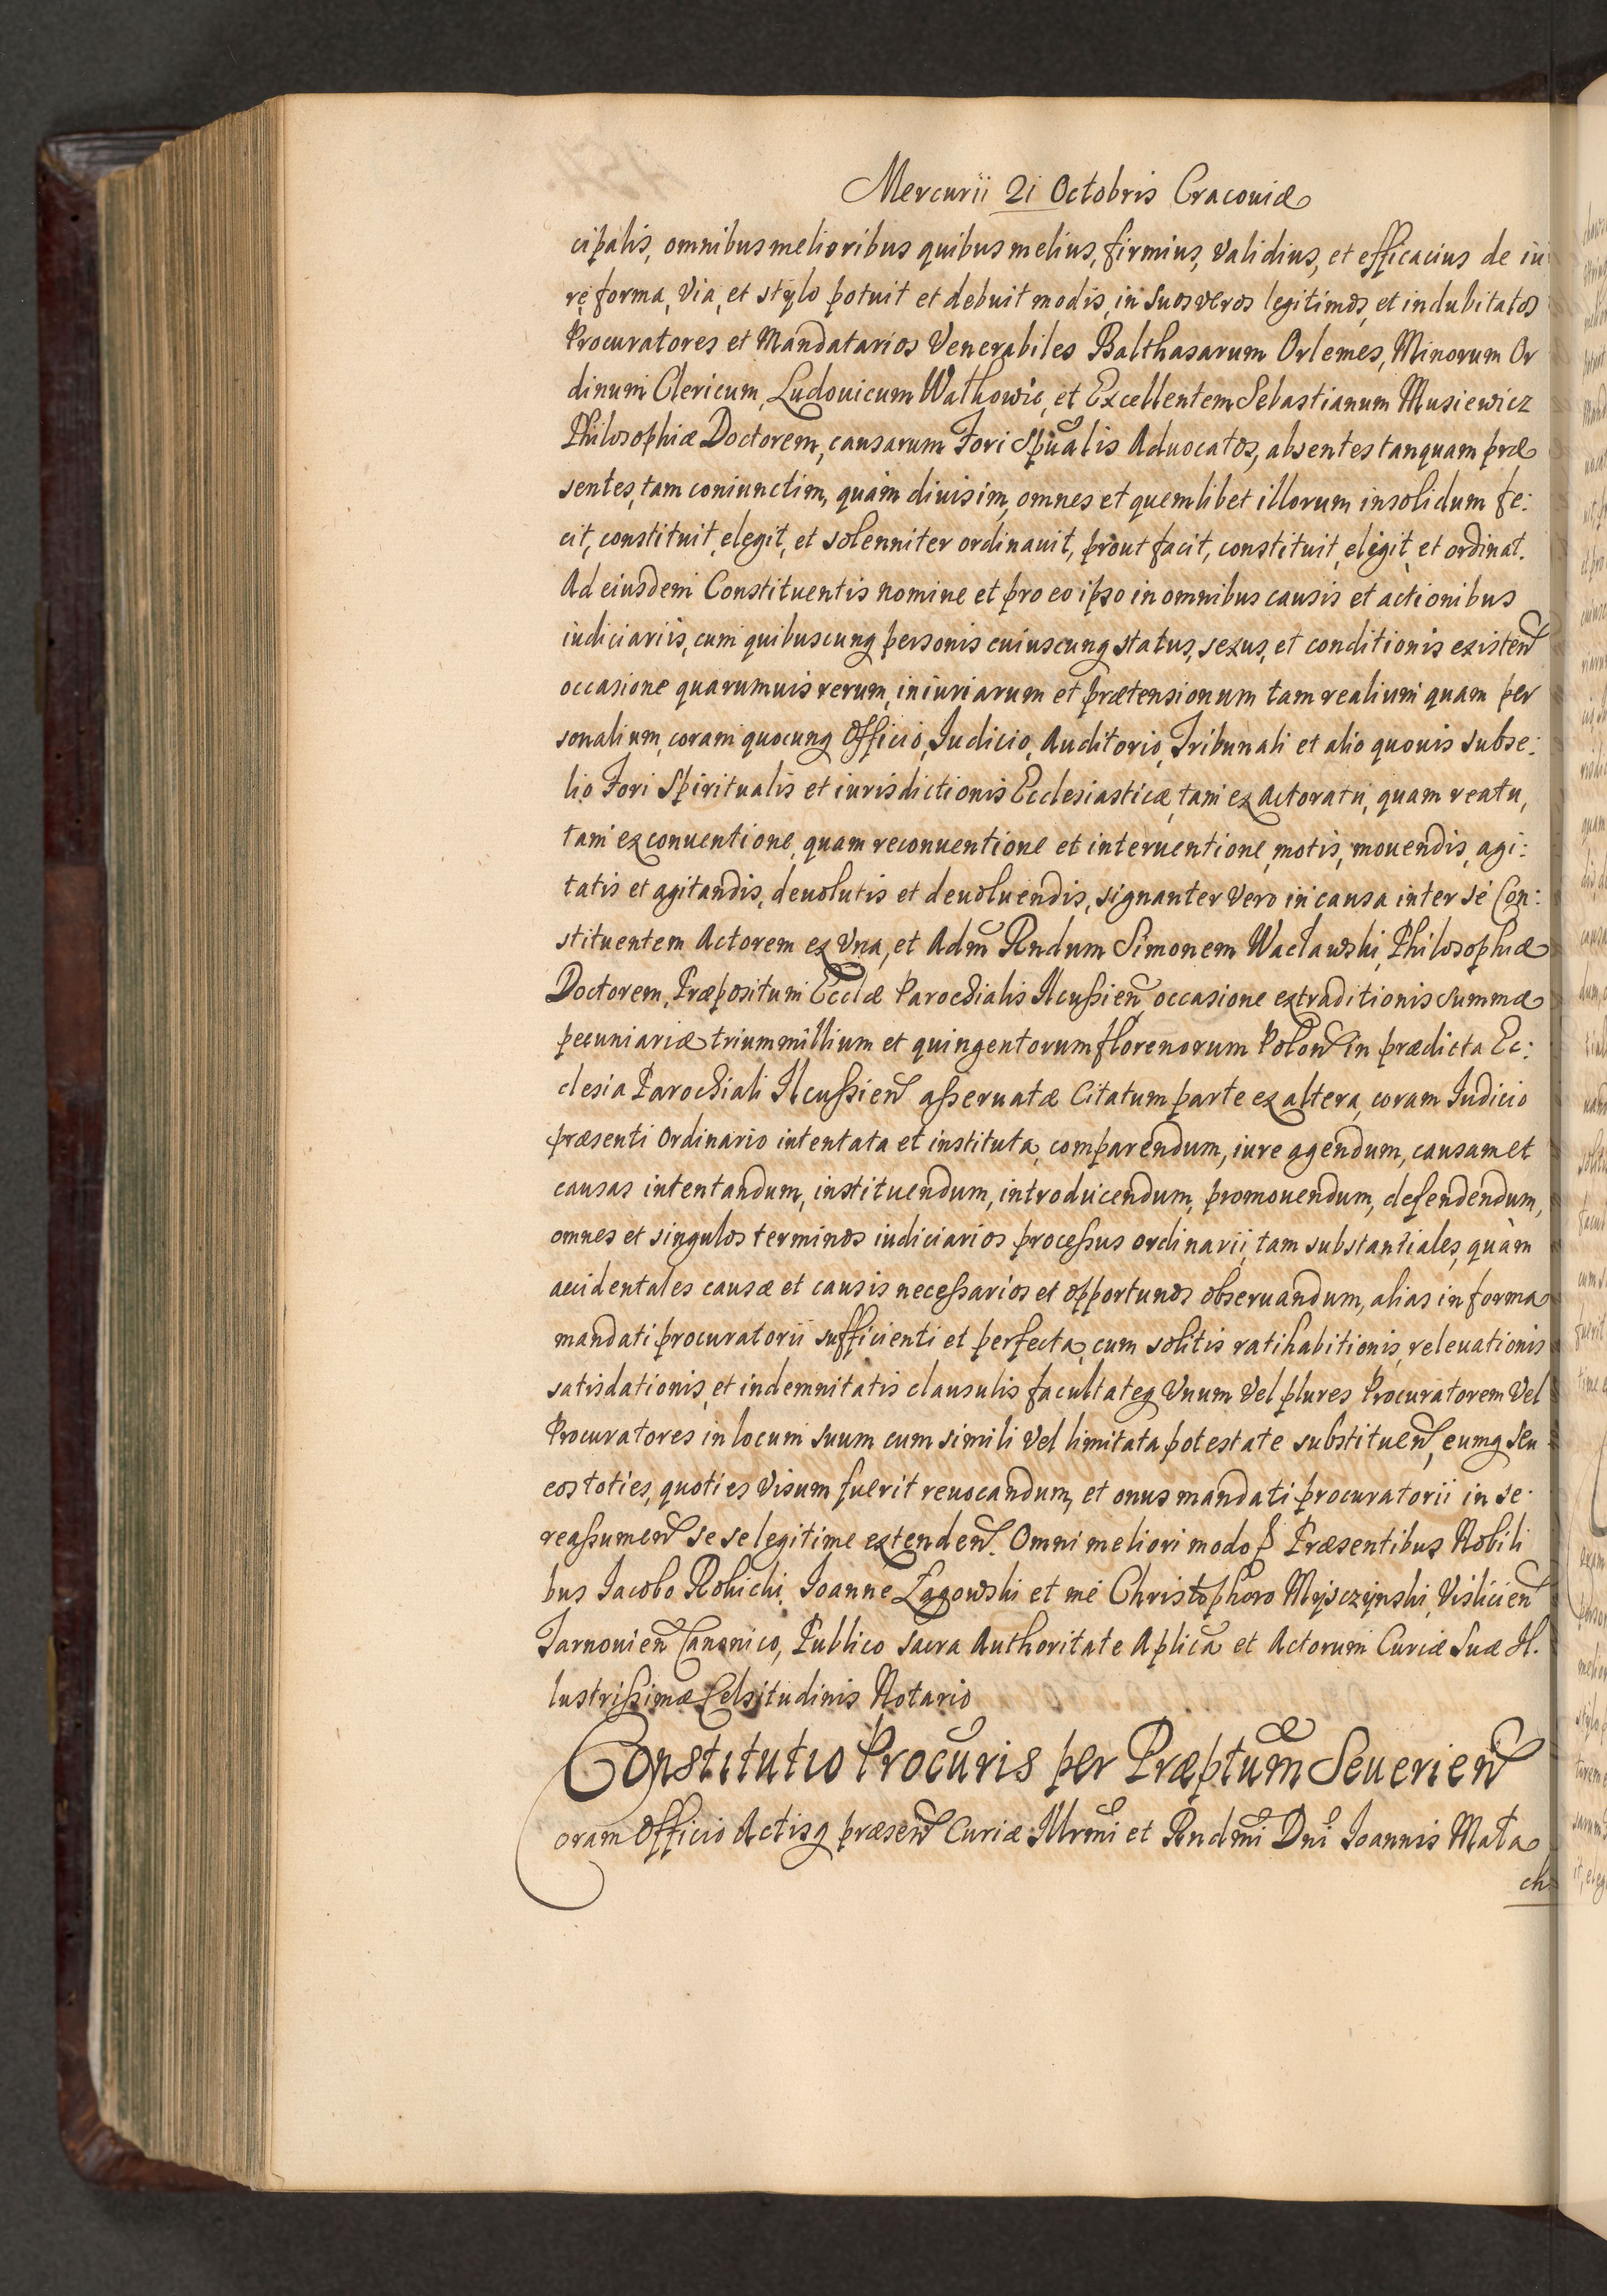 Mercurii 21 Octobris Cracouiæ
cipalis, omnibus melioribus quibus melius, firmius, validius, et efficacius de iu
re, forma, via, et stylo potuit et debuit modis, in suos veros legitimos, et indubitatos
Procuratores et Mandatarios Venerabiles Balthasarum Orlemes, Minorum Or
dinum Clericum, Ludouicum Wathowic, et Excellentem Sebastianum Musiewicz
Philosophiæ Doctorem, causarum Fori Spũalis Aduocatos, absentes tanquam præ
sentes, tam coniunctim, quàm diuisim, omnes et quemlibet illorum insolidum fe:
cit, constituit, elegit, et solenniter ordinauit, prout facit, constituit, eligit, et ordinat.
Ad eiusdem Constituentis nomine et pro eo ipso in omnibus causis et actionibus
iudiciariis, cum quibuscunq personis cuiuscunq status, sexus, et conditionis existeñ
occasione quarumuis rerum, iniuriarum et prætensionum tam realium quam per
sonalium, coram quocunq Officio, Iudicio, Auditorio, Tribunali et alio quouis subse:
lio Fori Spiritualis et iurisdictionis Ecclesiasticæ, tam ex Actoratu, quam reatu,
tam ex conuentione, quam reconuentione et interuentione, motis, mouendis, agi:
tatis et agitandis, deuolutis et deuoluendis, signanter vero in causa inter se Con:
stituentem Actorem ex Vna, et Adm̃ Rndum Simonem Wacławski, Philosophiæ
Doctorem, Præpositum Ecclæ Parochialis Ilcussieñ, occasione extraditionis summæ
pecuniariæ trium millium et quingentorum florenorum Poloñ in prædicta Ec:
clesia Parochiali Ilcussieñ asseruatæ Citatum parte ex altera, coram Iudicio
præsenti Ordinario intentata et instituta, comparendum, iure agendum, causam et
causas intentandum, instituendum, introducendum, promouendum, defendendum,
omnes et singulos terminos iudiciarios processus ordinarii, tam substantiales, quàm
accidentales causæ et causis necessarios et opportunos obseruandum, alias in forma
mandati procuratorii sufficienti et perfecta, cum solitis ratihabitionis, releuationis
satisdationis, et indemnitatis clausulis facultateq Vnum vel plures Procuratorem vel
Procuratores in locum suum cum simili vel limitata potestate substitueñ, eumq seu
eos toties, quoties visum fuerit reuocandum, et onus mandati procuratorii in se
reassumeñ se se legitime extendeñ. Omni meliori modo ꝑ Præsentibus Nobili
bus Iacobo Robicki, Ioanne Łagowski et me Christophoro Mijsczijnski, Vislicieñ
Tarnouieñ Canonico, Publico Sacra Authoritate Aplica et Actorum Curiæ Suæ Il.
lustrissimæ Celsitudinis Notario
Constitutio Procuris per Præptum Seuerieñ
Coram Officio Actisq præseñ Curiæ Illrmi et Rndmi Dni Ioannis Mała
ch